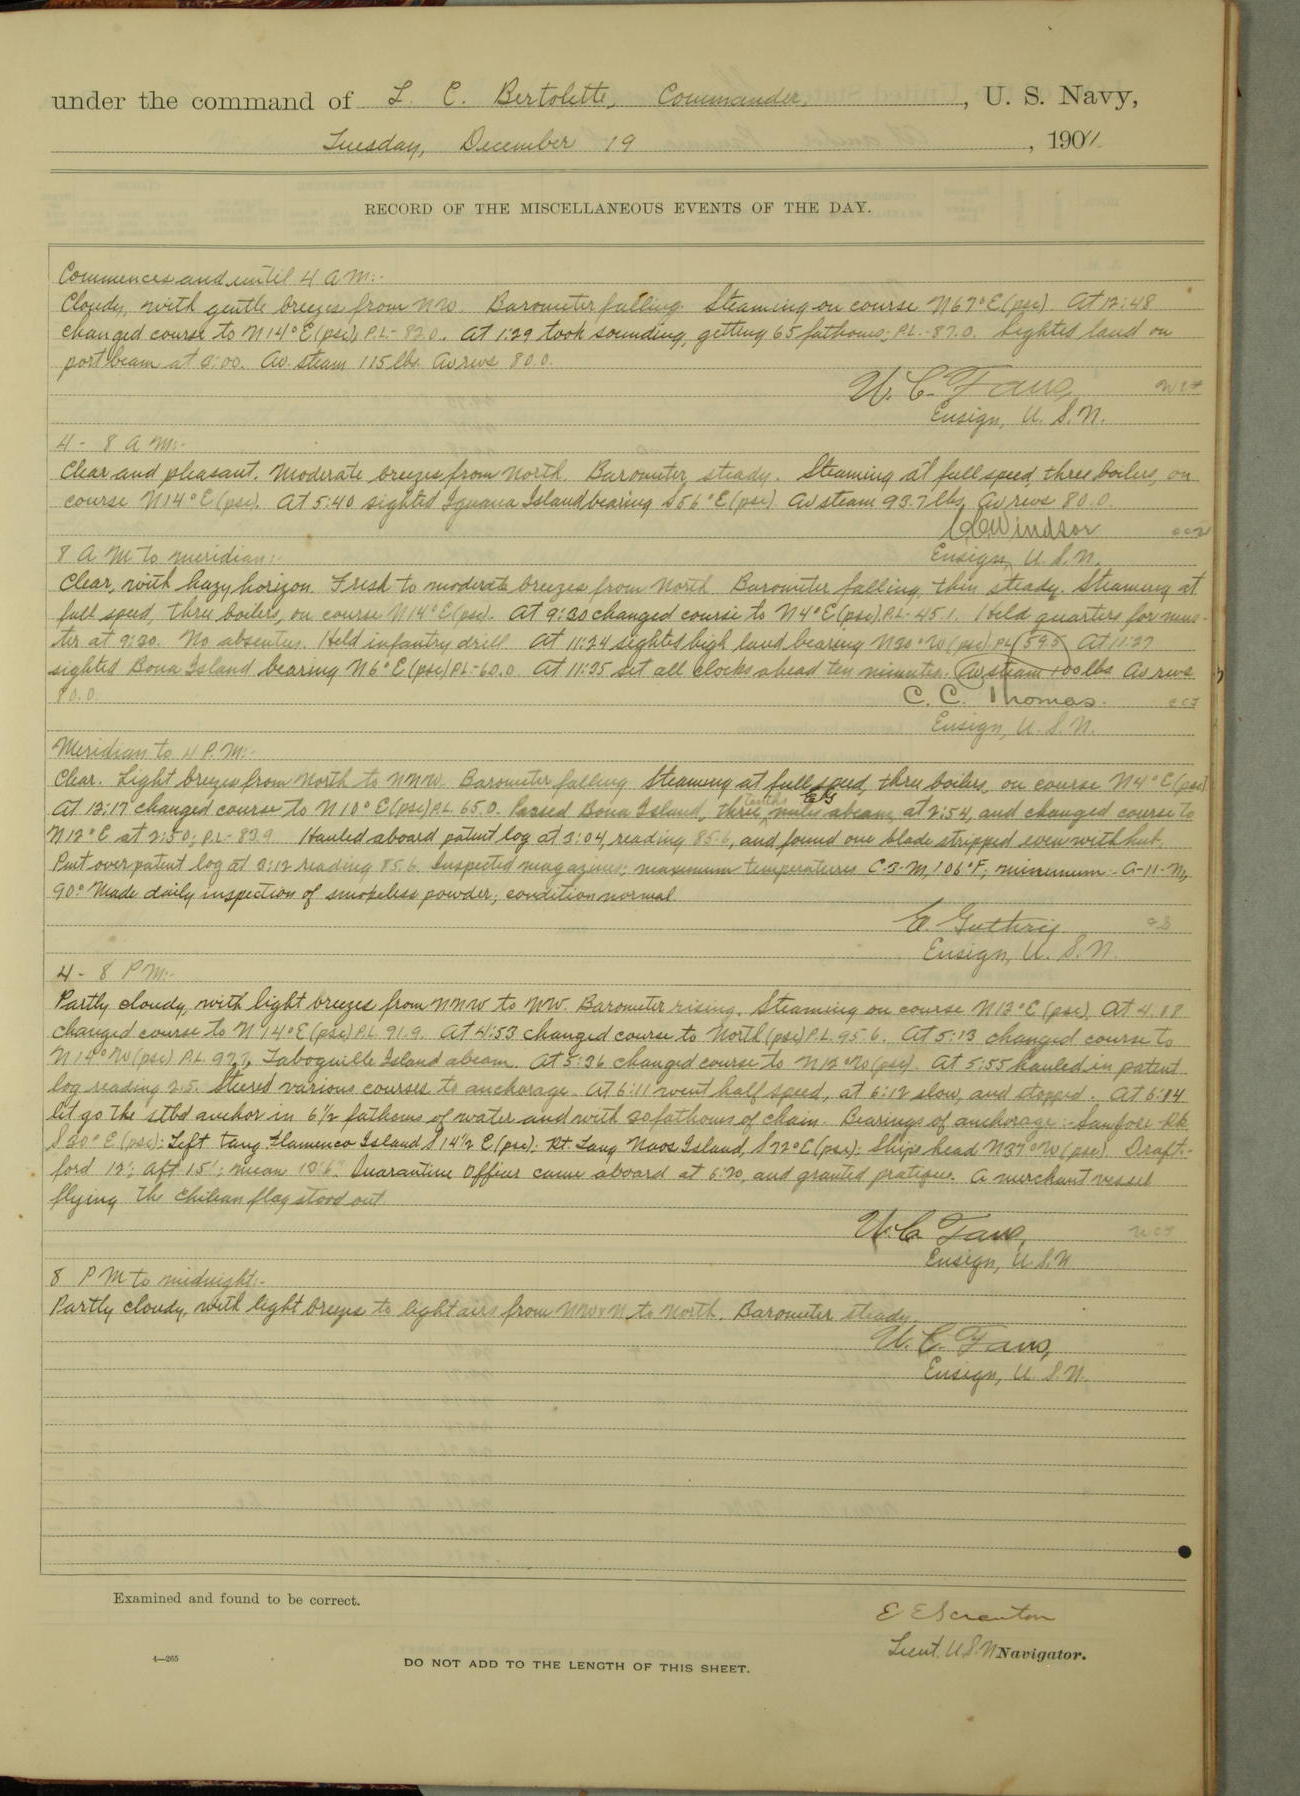 under the command of L. C. Bertolette, Commander, U. S. Navy,
Tuesday, December 19, 190
RECORD OF THE MISCELLANEOUS EVENTS OF THE DAY.
Commences and until 4 A M:-
Cloudy, with gentle breezes from NW. Barometer falling. Steaming on course N67°E (psc). At 12:48
changed course to N14°E (psc), P.L.- 82.0. At 1:29 took sounding, getting 65 fathoms; P.L.- 87.0. Sighted land on
port beam at 3:00. Av. steam 115 lbs. Av revs 80.0.
Ensign, U. S. N.
4 - 8 A M:-
Clear and pleasant. Moderate breezes from North. Barometer, steady. Steaming at full speed, three boilers, on
course N14°E (psc). At 5:40 sighted Iguana Island bearing S56°E (psc). Av steam 93.7 lbs. Av revs 80.0.
Windsor
Ensign, U. S. N.
8 A M to meridian:-
Clear, with hazy horizon. Fresh to moderate breezes from North. Barometer falling, then steady. Steaming at
full speed, three boilers, on course N14°E (psc). At 9:20 changed course to N4°E (psc). P.L.- 45.1. Held quarters for mus-
ter at 9:30. No absentees. Held infantry drill. At 11:24 sighted high land bearing N30°W (psc) P.L. (59.5) At 11:27
sighted Bona Island bearing N6°E (psc) P.L.- 60.0. At 11:35 set all clocks ahead ten minutes. Av steam 100 lbs Av revs
80.0.
C. C. Thomas.
Ensign, U. S. N.
Meridian to 4 P. M:-
Clear. Light breezes from North to NNW. Barometer falling. Steaming at full speed, three boilers, on course N4°E (psc)
At 12:17 changed course to N10°E (psc) P.L. 65.0. Passed Bona Island, three tenths miles abeam, at 2:54, and changed course to
N12°E at 2:50; P.L.- 83.9. Hauled aboard patent log at 3:04, reading 85.6, and found one blade stripped even with hub.
Put over patent log at 3:12 reading 85.6. Inspected magazines; maximum temperatures C-3-M, 106°F; minimum - A-11-M,
90°. Made daily inspection of smokeless powder; condition normal.
E. Guthrie
Ensign, U. S. N.
4 - 8 P M:-
Partly cloudy, with light breezes from NNW to NW. Barometer rising. Steaming on course N12°E (psc). At 4.18
changed course to N14°E (psc) P.L. 91.9. At 4:53 changed course to North (psc) P.L. 95.6. At 5:13 changed course to
N14°W (psc) P.L. 97.7, Taboguille Island abeam. At 5:36 changed course to N12°W (psc). At 5:55 hauled in patent
log reading 2.5. Steered various courses to anchorage. At 6:11 went half speed, at 6:12 slow, and stopped. At 6:14
let go the stbd anchor in 6½ fathoms of water and with 30 fathoms of chain. Bearings of anchorage:- Sanjose Rk
S20°E (psc); Left tang Flamenco Island S14½E (psc); Rt Tang Naos Island, S22°E (psc); Ship's head N37°W (psc). Draft:-
ford 12'; aft 15'; mean 13'6". Quarantine Officer came aboard at 6:20, and granted pratique. A merchant vessel
flying the Chilean flag stood out.
Ensign, U. S. N
8 P M to midnight:-
Partly cloudy, with light breezes to light airs from NWxN to North. Barometer steady.
Ensign, U. S. N.
Examined and found to be correct.
E E Scranton
Lieut. U S N Navigator.
4—265
DO NOT ADD TO THE LENGTH OF THIS SHEET.